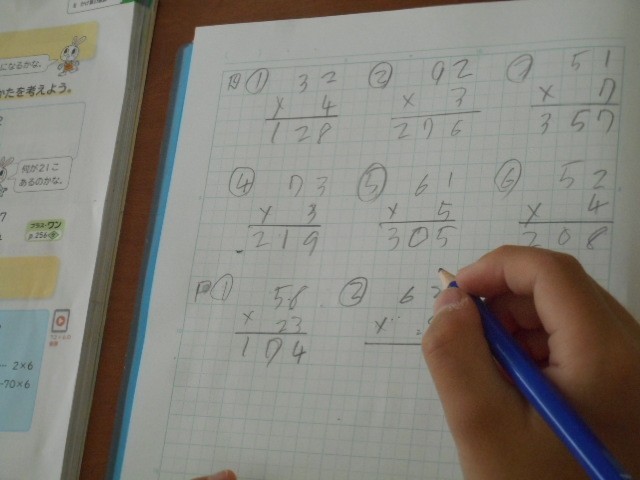 になるかな。
かたを考えよう。
何が21こ
あるのかな。
プラス・ワン
2×6
-70×6
① 32 ② 92 ③ 51
× 4 × 3 × 7
128 276 357
④ 73 ⑤ 61 ⑥ 52
× 3 × 5 × 4
219 305 208
① 58 ② 6
× 23 ×
174